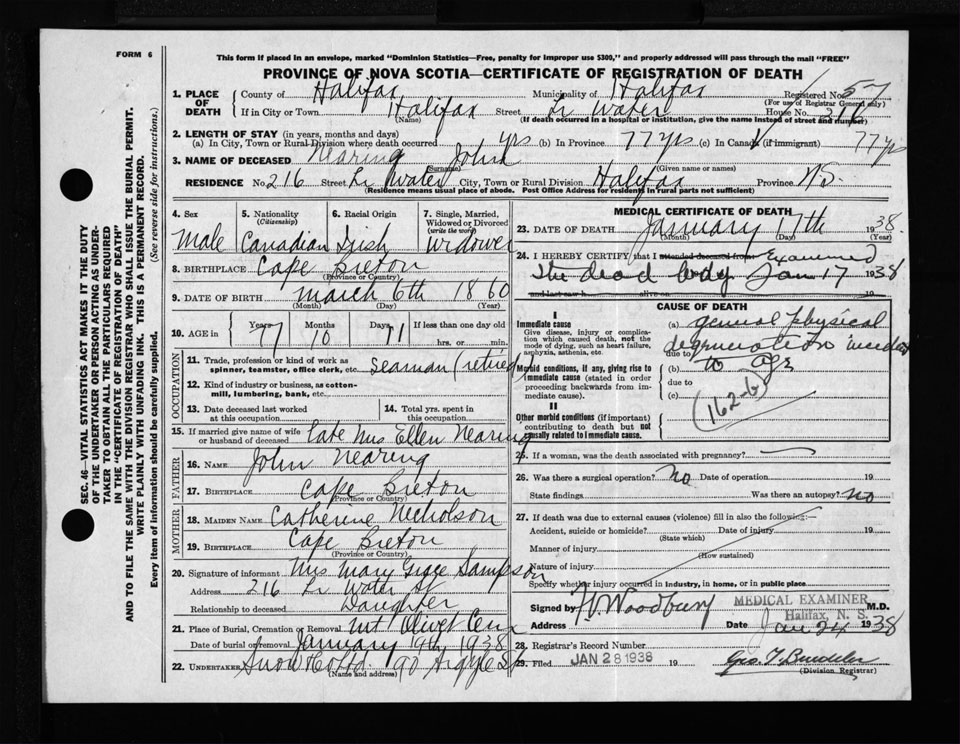 FORM 6
This form if placed in an envelope, marked "Dominion Statistics—Free, penalty for improper use $300," and properly addressed will pass through the mail "FREE"
PROVINCE OF NOVA SCOTIA—CERTIFICATE OF REGISTRATION OF DEATH
SEC. 46—VITAL STATISTICS ACT MAKES IT THE DUTY
OF THE UNDERTAKER OR PERSON ACTING AS UNDER-
TAKER TO OBTAIN ALL THE PARTICULARS REQUIRED
IN THE "CERTIFICATE OF REGISTRATION OF DEATH"
AND TO FILE THE SAME WITH THE DIVISION REGISTRAR WHO SHALL ISSUE THE BURIAL PERMIT.
WRITE PLAINLY WITH UNFADING INK. THIS IS A PERMANENT RECORD.
Every item of information should be carefully supplied. (See reverse side for instructions.)
1. PLACE OF DEATH County of Halifax Municipality of Halifax Registered No. 57
(For use of Registrar General only)
If in City or Town Halifax Street Lr Water House No. 216
(Name) (If death occurred in a hospital or institution, give the name instead of street and number)
2. LENGTH OF STAY (in years, months and days)
(a) In City, Town or Rural Division where death occurred yrs (b) In Province 77 yrs (c) In Canada (if immigrant) 77 yrs
3. NAME OF DECEASED Nearing John
(Surname) (Given name or names)
RESIDENCE No. 216 Street Lr Water City, Town or Rural Division Halifax Province NS.
(Residence means usual place of abode. Post Office Address for residents in rural parts not sufficient)
4. Sex 5. Nationality (Citizenship) 6. Racial Origin 7. Single, Married, Widowed or Divorced (write the word)
Male Canadian Irish widower
8. BIRTHPLACE Cape Breton
(Province or Country)
9. DATE OF BIRTH March 6th 1860
(Month) (Day) (Year)
10. AGE in Years Months Days If less than one day old
77 10 11 hrs. or min.
OCCUPATION
11. Trade, profession or kind of work as spinner, teamster, office clerk, etc. Seaman (retired)
12. Kind of industry or business, as cotton-mill, lumbering, bank, etc.
13. Date deceased last worked at this occupation
14. Total yrs. spent in this occupation
15. If married give name of wife or husband of deceased Late Mrs Ellen Nearing
FATHER
16. NAME John Nearing
17. BIRTHPLACE Cape Breton
(Province or Country)
MOTHER
18. MAIDEN NAME Catherine Nicholson
19. BIRTHPLACE Cape Breton
(Province or Country)
20. Signature of informant Mrs Mary Sampson
Address 216 Lr Water St
Relationship to deceased Daughter
21. Place of Burial, Cremation or Removal Mt Olivet Cem
Date of burial or removal January 19th 1938
22. UNDERTAKER Snow Co Ltd. 90 Argyle St
(Name and address)
MEDICAL CERTIFICATE OF DEATH
23. DATE OF DEATH January 17th 1938.
(Month) (Day) (Year)
24. I HEREBY CERTIFY that I attended deceased from Examined
the dead body Jan 17 1938
and last saw h alive on
CAUSE OF DEATH
I
Immediate cause
Give disease, injury or complication which caused death, not the mode of dying, such as heart failure, asphyxia, asthenia, etc.
(a) general physical
degeneration incident
due to
Morbid conditions, if any, giving rise to immediate cause (stated in order proceeding backwards from immediate cause).
(b) to age
due to
(c)
(162-b)
II
Other morbid conditions (if important) contributing to death but not causally related to immediate cause.
25. If a woman, was the death associated with pregnancy?
26. Was there a surgical operation? No Date of operation 19
State findings Was there an autopsy? No
27. If death was due to external causes (violence) fill in also the following:—
Accident, suicide or homicide? Date of injury 19
(State which)
Manner of injury
(How sustained)
Nature of injury
Specify whether injury occurred in industry, in home, or in public place
Signed by Woodbury M.D.
MEDICAL EXAMINER
Halifax, N. S.
Address Date Jan 24 1938
28. Registrar's Record Number
29. Filed JAN 28 1938 19
(Division Registrar)